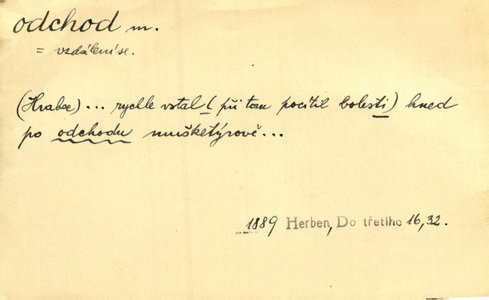 odchod m.
= vzdálení se.
(Hrabě) ... rychle vstal (při tom pocítil bolesti) hned
po odchodu mušketýrově...
1889 Herben, Do třetího 16, 32.